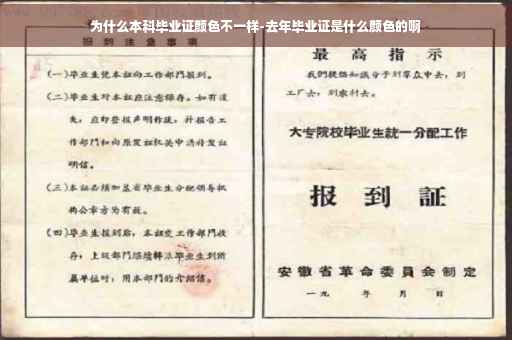 为什么本科毕业证颜色不一样-去年毕业证是什么颜色的啊
报到注意事项
(一)毕业生凭本证向工作部门报到。
(二)毕业生对本证应注意保存。如有遗
失,应即登报声明作废,并报告工
作部门和向原发证机关申请补发证
明信。
(三)本证必须加盖省毕业生分配领导机
构公章方为有效。
(四)毕业生报到后,本证交工作部门收
存;上级部门
毕业生到所
属单位时,用本部门的介绍信。
最高指示
我们提倡知识分子到群众中去,到
工厂去,到农村去。
大专院校毕业生统一分配工作
报到証
安徽省革命委員会制定
一九 年 月 日